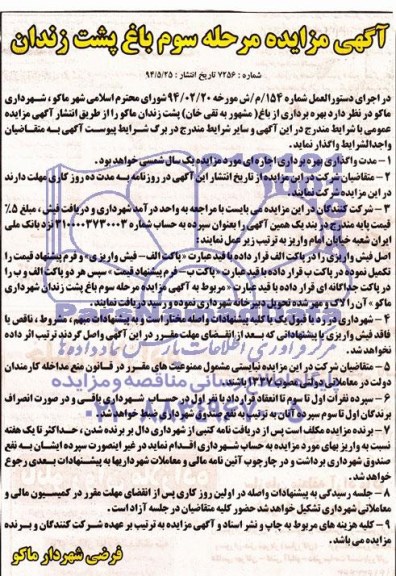 آگهی مزایده مرحله سوم باغ پشت زندان
شماره : ۷۲۵۶ تاریخ انتشار : ۹۴/۵/۲۵
در اجرای دستورالعمل شماره ۱۵۴/م/ش مورخه ۹۴/۰۲/۲۰ شورای محترم اسلامی شهر ماکو ، شهرداری
ماکو در نظر دارد بهره برداری از باغ( مشهور به تقی خان) پشت زندان ماکو را از طریق انتشار آگهی مزایده
عمومی با شرایط مندرج در این آگهی و سایر شرایط مندرج در برگ شرایط پیوست آگهی به متقاضیان
واجدالشرایط واگذار نماید.
۱ – مدت واگذاری بهره برداری اجاره ای مورد مزایده یک سال شمسی خواهد بود .
۲ – متقاضیان شرکت در این مزایده از تاریخ انتشار این آگهی در روزنامه به مدت ده روز کاری مهلت دارند
در این مزایده شرکت نمایند.
۳ – شرکت کنندگان در این مزایده می بایست با مراجعه به واحد درآمد شهرداری و دریافت فیش ، مبلغ ۵٪
قیمت پایه مندرج در بند یک همین آگهی را بعنوان سپرده به حساب شماره ۳۱۰۰۰۰۳۷۳۰۰۰۳ نزد بانک ملی
ایران شعبه خیابان امام واریز به ترتیب زیر عمل نمایند:
اصل فیش واریزی را در پاکت الف قرار داده با قید عبارت « پاکت الف – فیش واریزی » و فرم پیشنهاد قیمت را
تکمیل نموده در پاکت ب قرار داده با قید عبارت « پاکت ب – فرم پیشنهاد قیمت » سپس هر دو پاکت الف و ب را
در پاکت جداگانه ای قرار داده با قید عبارت « مربوط به آگهی مزایده مرحله سوم باغ پشت زندان شهرداری
ماکو » آن را لاک و مهر شده تحویل دبیرخانه شهرداری نموده و رسید دریافت نمایند.
۴ – شهرداری در رد یا قبول یک یا کلیه پیشنهادات واصله مختار است و به پیشنهادات مبهم ، مشروط ، ناقص یا
فاقد فیش واریزی یا پیشنهاداتی که بعد از انقضای مهلت مقرر در این آگهی واصل گردند ترتیب اثر داده
نخواهد شد.
۵ – متقاضیان شرکت در این مزایده نبایستی مشمول ممنوعیت های مقرر در قانون منع مداخله کارمندان
دولت در معاملات دولتی مصوب ۱۳۳۷ باشند.
۶ – سپرده نفرات اول تا سوم تا انعقاد قرارداد با نفر اول در حساب شهرداری باقی و در صورت انصراف
برندگان اول تا سوم سپرده آنان به ترتیب به نفع صندوق شهرداری ضبط خواهد شد.
۷ – برنده مزایده مکلف است پس از دریافت نامه کتبی از شهرداری دال بر برنده شدن ، حداکثر تا یک هفته
نسبت به واریز بهای مورد مزایده به حساب شهرداری اقدام نماید در غیر اینصورت سپرده ایشان به نفع
صندوق شهرداری برداشت و در چارچوب آئین نامه مالی و معاملات شهرداریها به پیشنهادات بعدی رجوع
خواهد شد.
۸ – جلسه رسیدگی به پیشنهادات واصله در اولین روز کاری پس از انقضای مهلت مقرر در کمیسیون مالی و
معاملاتی شهرداری تشکیل خواهد شد حضور کلیه متقاضیان در جلسه آزاد است.
۹ – کلیه هزینه های مربوط به چاپ و نشر اسناد و آگهی مزایده به ترتیب بر عهده شرکت کنندگان و برنده
مزایده می باشد.
فرضی شهردار ماکو